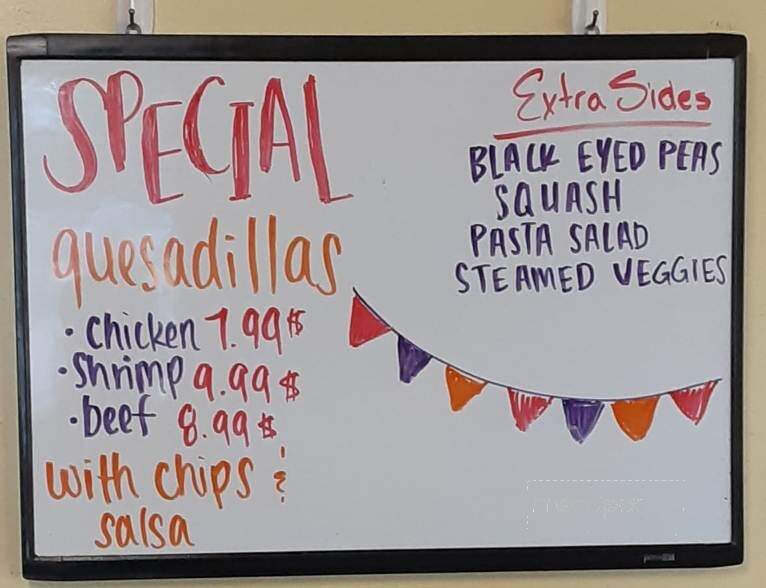 SPECIAL
quesadillas
• chicken 7.99$
• shrimp 9.99$
• beef 8.99$
with chips &
salsa
Extra Sides
BLACK EYED PEAS
SQUASH
PASTA SALAD
STEAMED VEGGIES